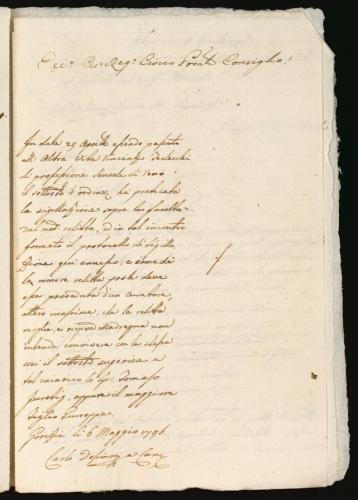 Ecc. Ces. Reg. Civico Prov. Consiglio!
In data 29 Aprile essendo passato
all' Altra Vita Vincenzo
di professione Sensale di vino
il sottos.to d'ordine, ha praticata
la sigillazione sopra la facoltà
dal med. relitta, ed in tal incontro
formato il protocollo di sigilla
zione qui annesso; e come che
la minore relitta prole deve
esser proveduta d'un curatore,
altro massime, che la relitta
moglie, e rispva Madregna non
intende convivere con la stessa
così il sottosto suggerisce a
tal incarico lo Sp: Tomaso
oppure il maggiore
figlio Giuseppe.
Gorizia li 6 Maggio 1796.
Carlo